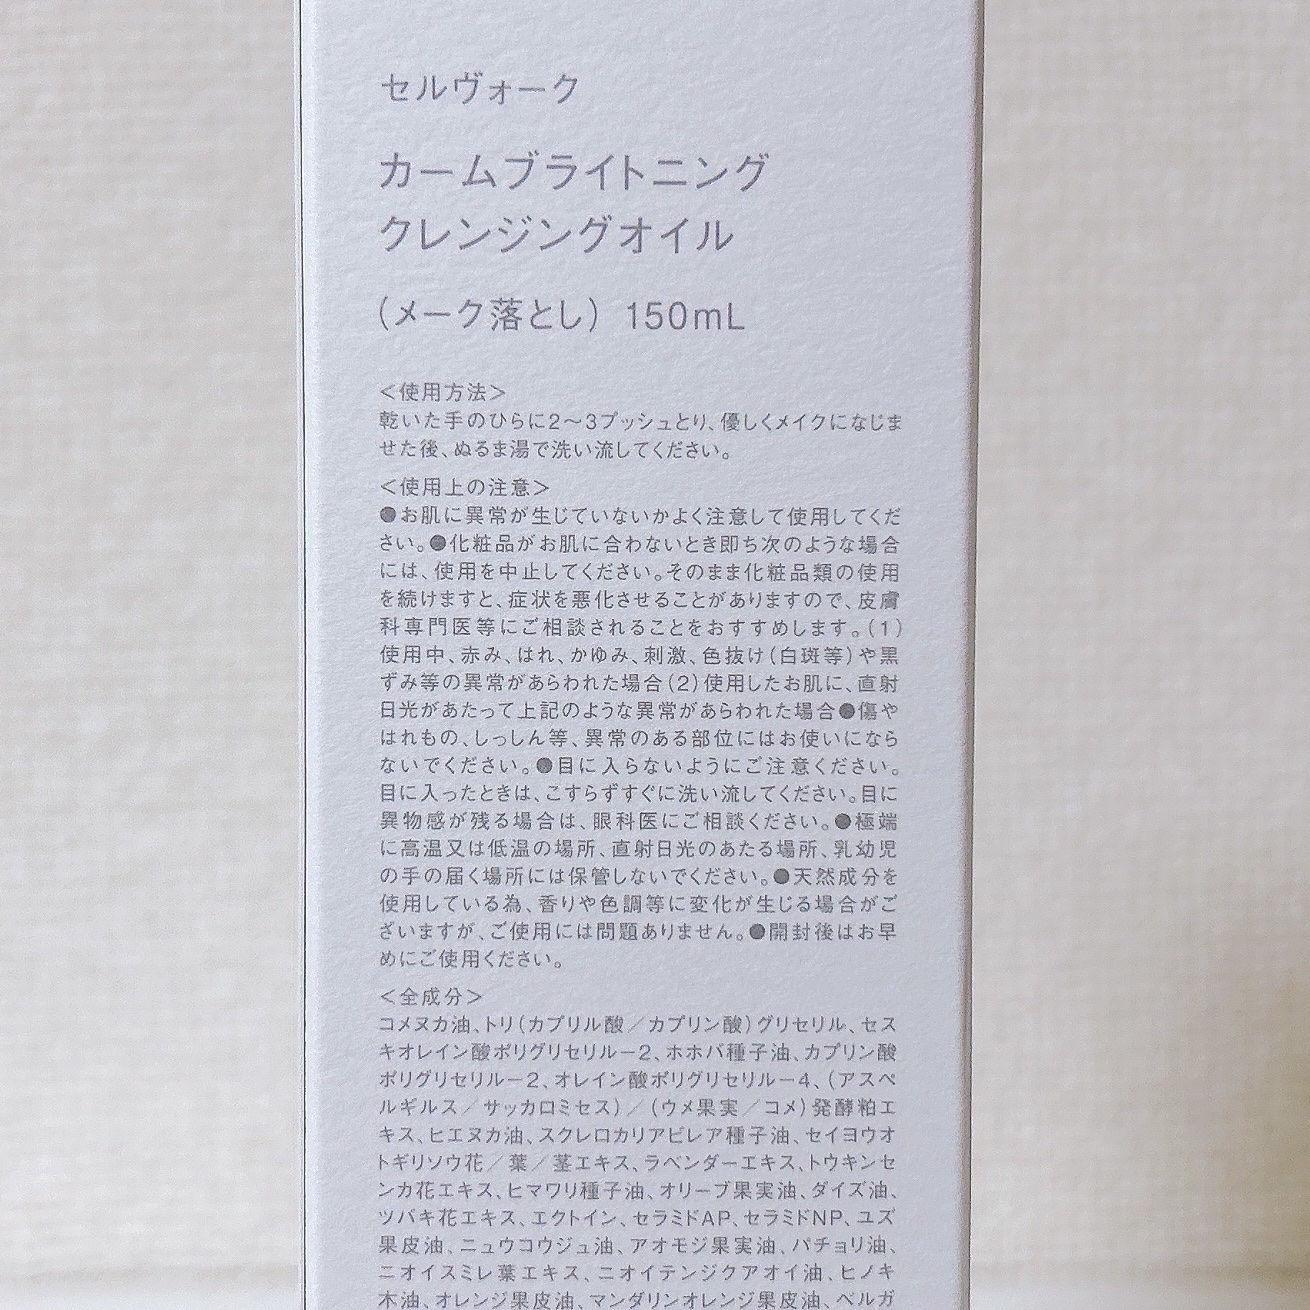 セルヴォーク
カームブライトニング
クレンジングオイル
(メーク落とし) 150mL
＜使用方法＞
乾いた手のひらに2〜3プッシュとり、優しくメイクになじま
せた後、ぬるま湯で洗い流してください。
＜使用上の注意＞
●お肌に異常が生じていないかよく注意して使用してくだ
さい。●化粧品がお肌に合わないとき即ち次のような場合
には、使用を中止してください。そのまま化粧品類の使用
を続けますと、症状を悪化させることがありますので、皮膚
科専門医等にご相談されることをおすすめします。(1)
使用中、赤み、はれ、かゆみ、刺激、色抜け(白斑等)や黒
ずみ等の異常があらわれた場合(2)使用したお肌に、直射
日光があたって上記のような異常があらわれた場合●傷や
はれもの、しっしん等、異常のある部位にはお使いになら
ないでください。●目に入らないようにご注意ください。
目に入ったときは、こすらずすぐに洗い流してください。目に
異物感が残る場合は、眼科医にご相談ください。●極端
に高温又は低温の場所、直射日光のあたる場所、乳幼児
の手の届く場所には保管しないでください。●天然成分を
使用している為、香りや色調等に変化が生じる場合がご
ざいますが、ご使用には問題ありません。●開封後はお早
めにご使用ください。
＜全成分＞
コメヌカ油、トリ(カプリル酸／カプリン酸)グリセリル、セス
キオレイン酸ポリグリセリルー2、ホホバ種子油、カプリン酸
ポリグリセリルー2、オレイン酸ポリグリセリルー4、(アスペ
ルギルス／サッカロミセス)／(ウメ果実／コメ)発酵粕エ
キス、ヒエヌカ油、スクレロカリアビレア種子油、セイヨウオ
トギリソウ花／葉／茎エキス、ラベンダーエキス、トウキンセ
ンカ花エキス、ヒマワリ種子油、オリーブ果実油、ダイズ油、
ツバキ花エキス、エクトイン、セラミドAP、セラミドNP、ユズ
果皮油、ニュウコウジュ油、アオモジ果実油、パチョリ油、
ニオイスミレ葉エキス、ニオイテンジクアオイ油、ヒノキ
木油、オレンジ果皮油、マンダリンオレンジ果皮油、ベルガ